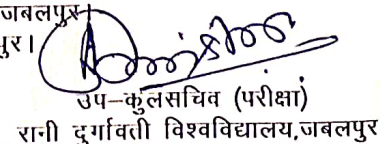 जबलपुर।
पुर।
उप–कुलसचिव (परीक्षा)
रानी दुर्गावती विश्वविद्यालय,जबलपुर